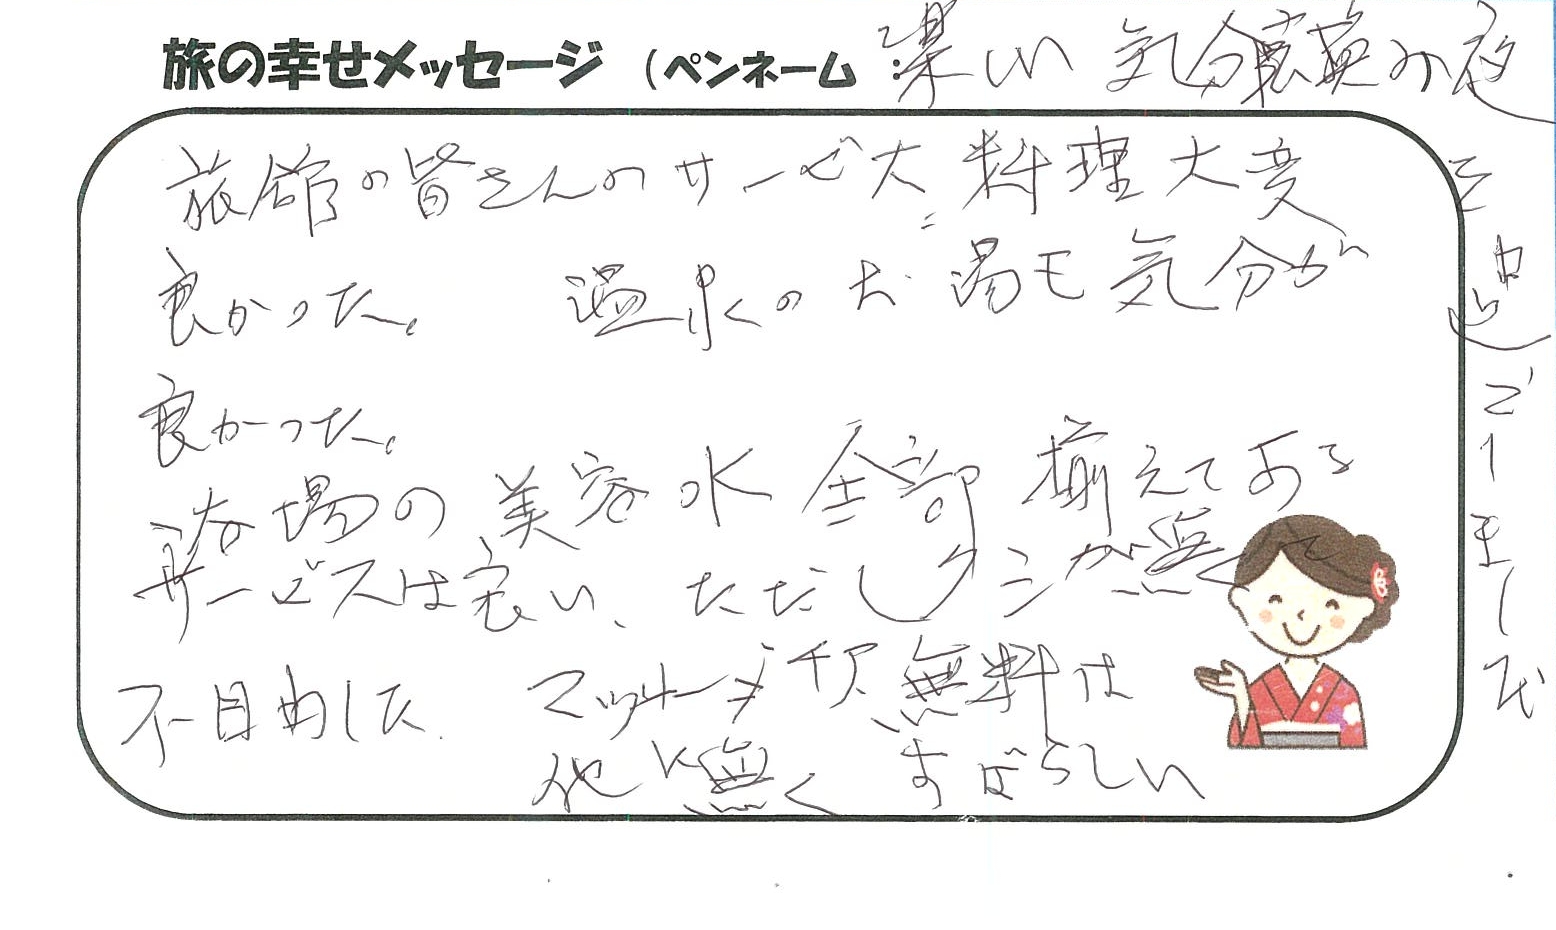 旅の幸せメッセージ (ペンネーム : 楽しい 気分 の夜
を過ごしました
旅館の皆さんのサービス、料理大変
良かった。 温泉のお湯も気分が
良かった。
浴場の美容水全部揃えてある
サービスは良い、ただしクシが無くて
不自由した. マッサージ 無料は
他に無く すばらしい